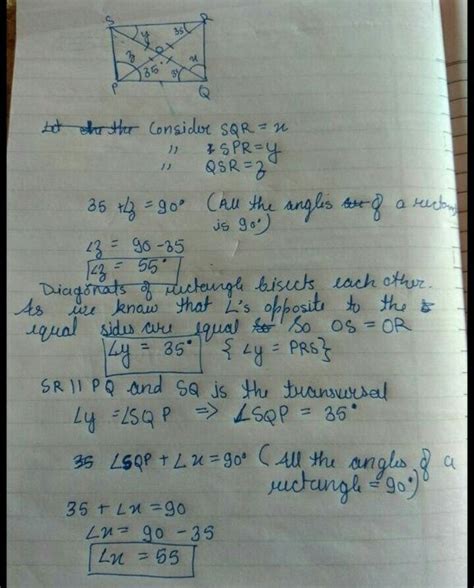 S R
y 35
O
z 35° 35 x
P Q
Let the the Consider SQR = x
" SPR = y
" QSR = z
35 + ∠z = 90° (All the angles of a rectan
is 90°)
∠z = 90 - 35
∠z = 55°
Diagonals of rectangle bisects each other.
As we know that L's opposite to the
equal sides are equal So OS = OR
∠y = 35° {∠y = PRS}
SR || PQ and SQ is the transversal
∠y = ∠SQP => ∠SQP = 35°
35 ∠SQP + ∠x = 90° (All the angles of a
rectangle = 90°)
35 + ∠x = 90
∠x = 90 - 35
∠x = 55